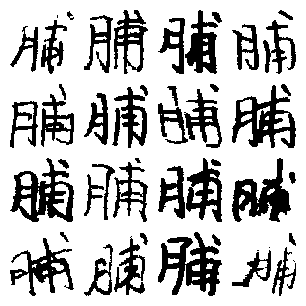 脯脯脯脯
脯脯脯脯
脯脯脯脯
脯脯脯脯